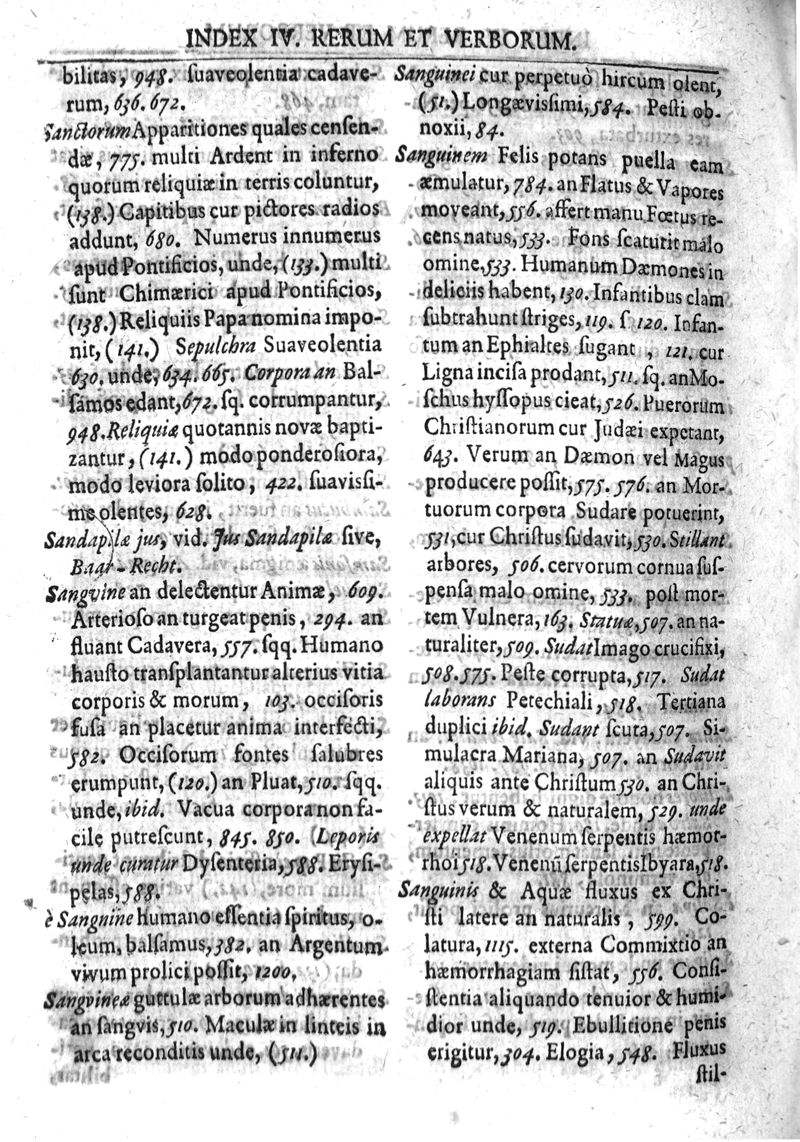 INDEX IV. RERUM ET VERBORUM.
bilitas, 948. suaveolentia cadave-
rum, 636. 672.
Sanctorum Apparitiones quales censen-
dæ, 775. multi Ardent in inferno
quorum reliquiæ in terris coluntur,
(138.) Capitibus cur pictores radios
addunt, 680. Numerus innumerus
apud Pontificios, unde, (133.) multi
sunt Chimærici apud Pontificios,
(138.) Reliquiis Papa nomina impo-
nit, (141.) Sepulchra Suaveolentia
630. unde, 634. 665. Corpora an Bal-
samos edant, 672. sq. corrumpantur,
948. Reliquiæ quotannis novæ bapti-
zantur, (141.) modo ponderosiora,
modo leviora solito, 422. suavissi-
me olentes, 628.
Sandapilæ jus, vid. Jus Sandapilæ sive,
Baar-Recht.
Sangvine an delectentur Animæ, 609.
Arterioso an turgeat penis, 294. an
fluant Cadavera, 557. sqq. Humano
hausto transplantantur alterius vitia
corporis & morum, 103. occisoris
fusa an placetur anima interfecti,
582. Occisorum fontes salubres
erumpunt, (120.) an Pluat, 510. sqq.
unde, ibid. Vacua corpora non fa-
cile putrescunt, 845. 850. (Leporis
unde curatur Dysenteria, 588. Erysi-
pelas, 588.
è Sangnine humano essentia spiritus, o-
leum, balsamus, 382. an Argentum
vivum prolici possit, 1200.
Sangvineæ guttulæ arborum adhærentes
an sangvis, 510. Maculæ in linteis in
arca reconditis unde, (511.)
Sanguinei cur perpetuò hircum olent,
(51.) Longævissimi, 584. Pesti ob-
noxii, 84.
Sanguinem Felis potans puella eam
æmulatur, 784. an Flatus & Vapores
moveant, 556. affert manu Fœtus re-
cens natus, 533. Fons scaturit malo
omine, 533. Humanum Dæmones in
deliciis habent, 130. Infantibus clam
subtrahunt striges, 119. s. 120. Infan-
tum an Ephialtes sugant, 121. cur
Ligna incisa prodant, 511. sq. an Mo-
schus hyssopus cieat, 526. Puerorum
Christianorum cur Judæi expetant,
643. Verum an Dæmon vel Magus
producere possit, 575. 576. an Mor-
tuorum corpora Sudare potuerint,
531, cur Christus sudavit, 530. Stillant
arbores, 506. cervorum cornua sus-
pensa malo omine, 533. post mor-
tem Vulnera, 163. Statuæ, 507. an na-
turaliter, 509. Sudat Imago crucifixi,
508. 575. Peste corrupta, 517. Sudat
laborans Petechiali, 518. Tertiana
duplici ibid. Sudant scuta, 507. Si-
mulacra Mariana, 507. an Sudavit
aliquis ante Christum 530. an Chri-
stus verum & naturalem, 529. unde
expellat Venenum serpentis hæmor-
rhoi 518. Venenũ serpentis Ibyara, 518.
Sanguinis & Aquæ fluxus ex Chri-
sti latere an naturalis, 599. Co-
latura, 1115. externa Commixtio an
hæmorrhagiam sistat, 556. Consi-
stentia aliquando tenuior & humi-
dior unde, 519. Ebullitione penis
erigitur, 304. Elogia, 548. Fluxus
stil-